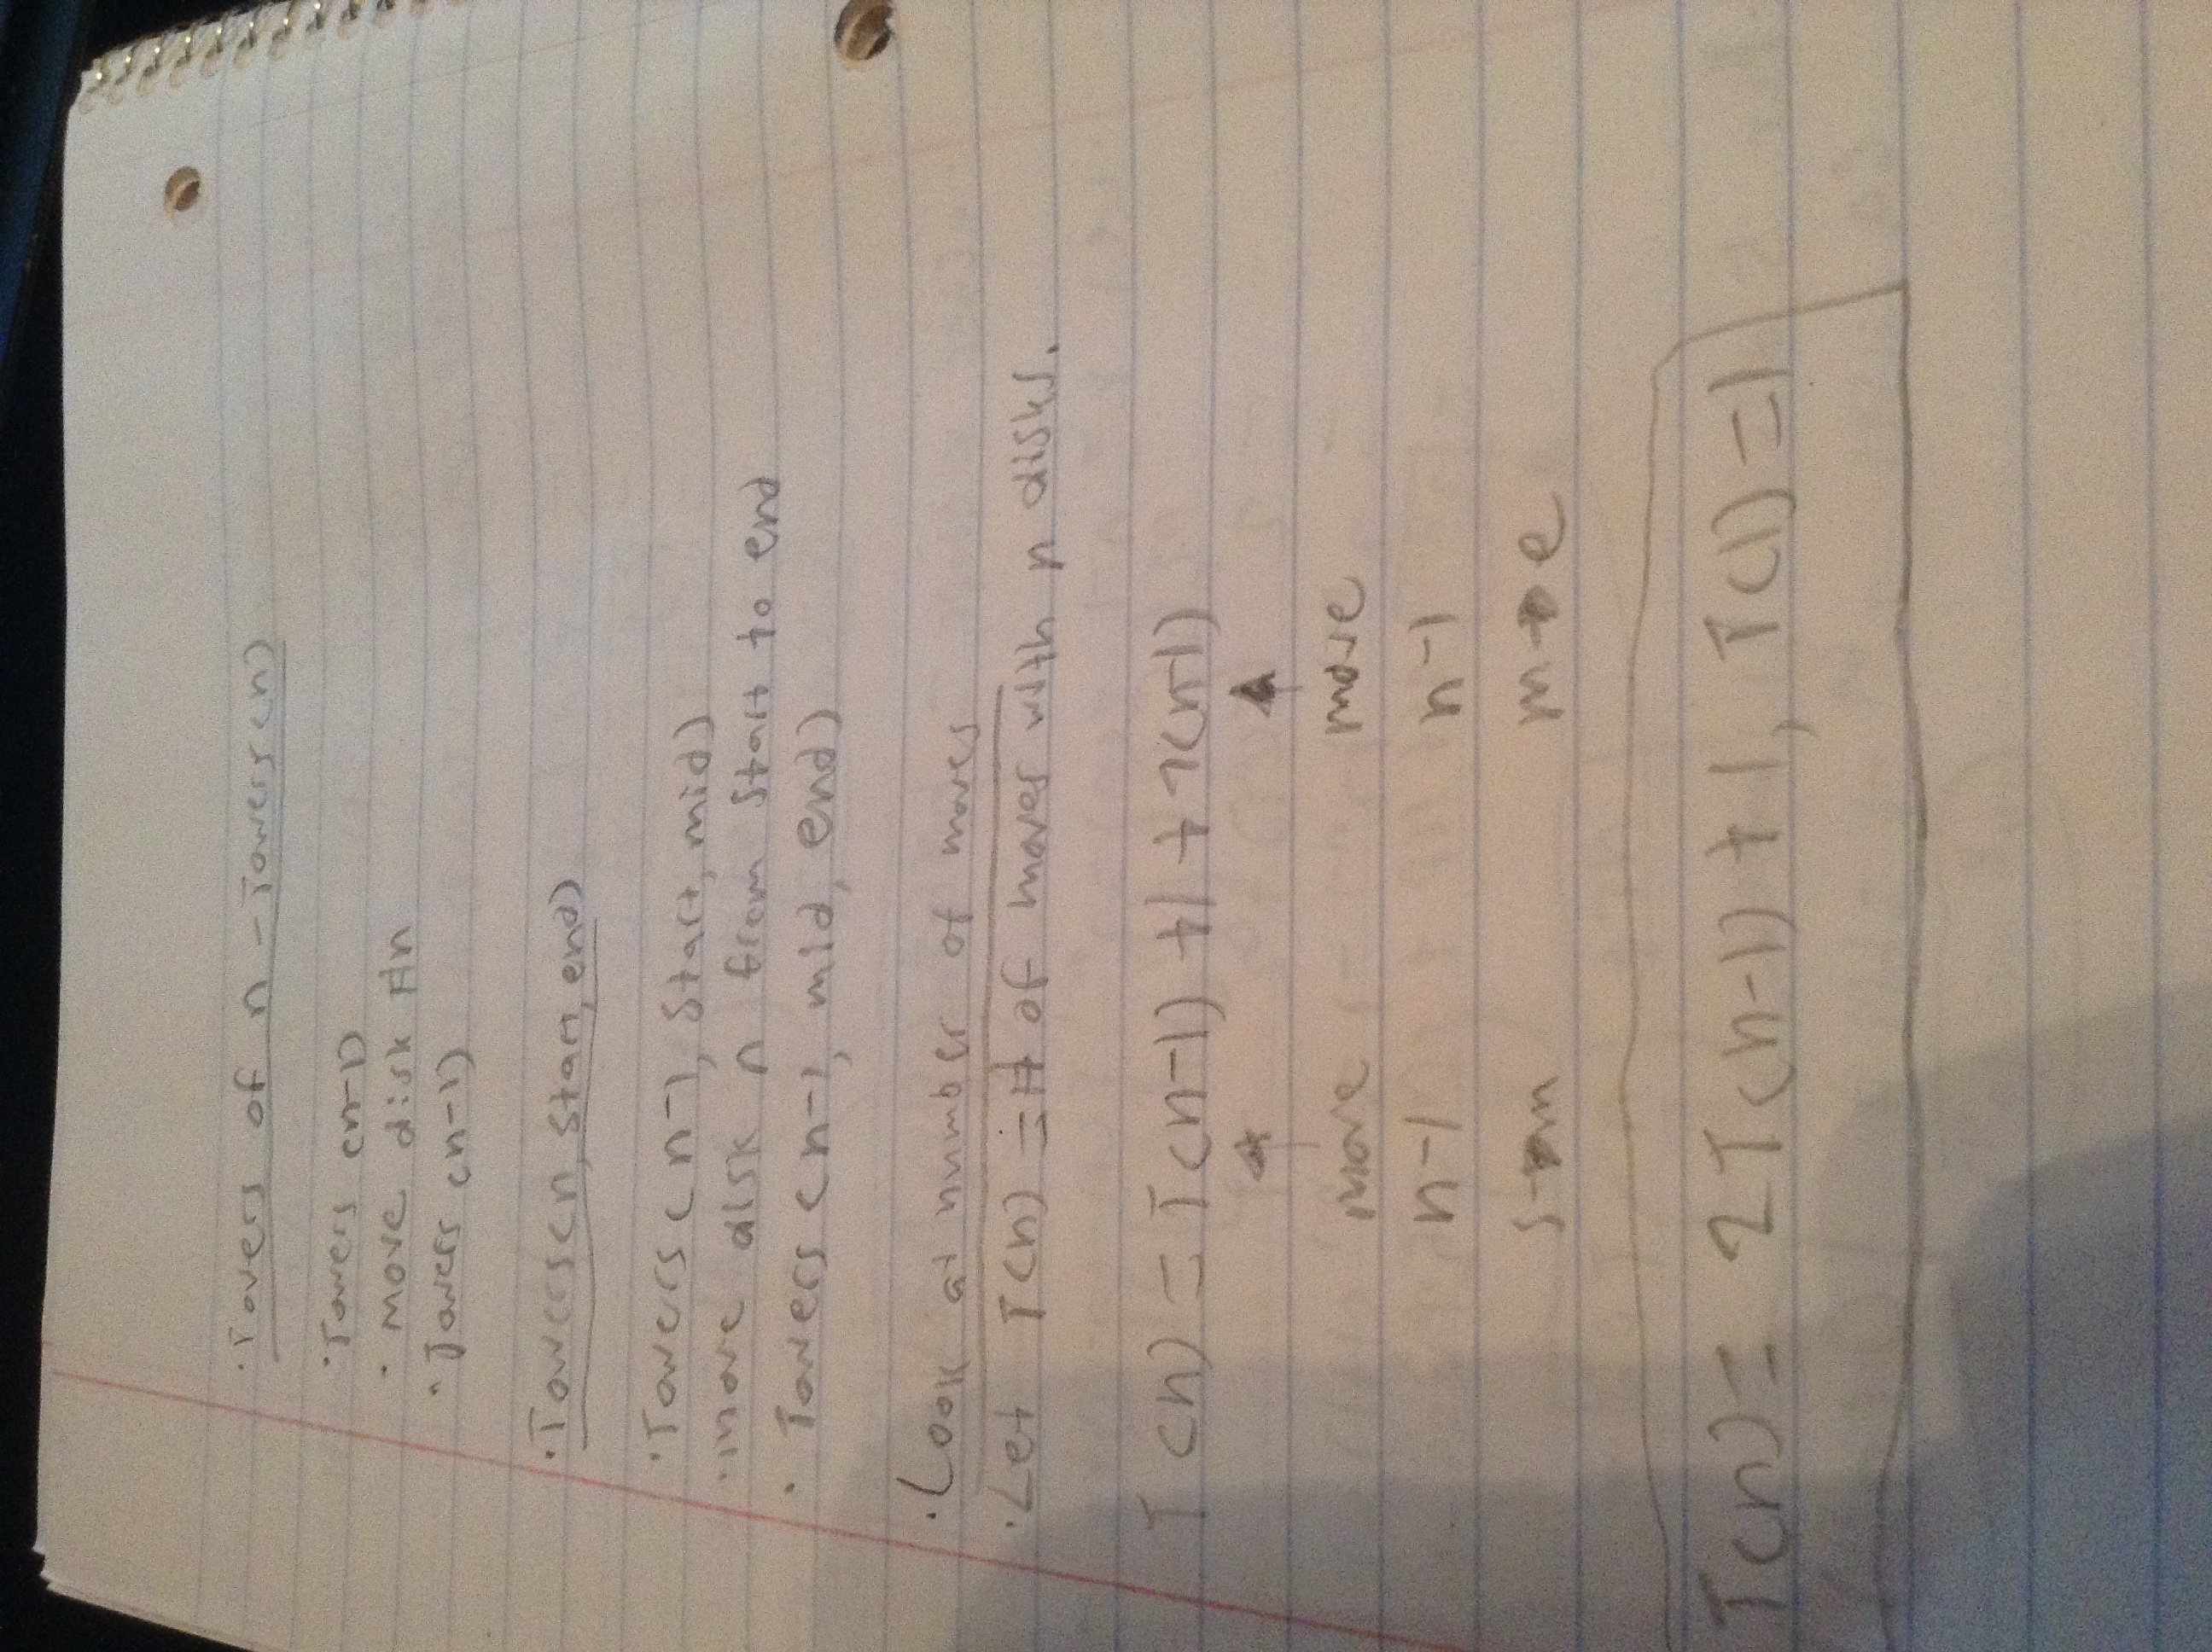 · Towers of n - Towers(n)
· Towers (n-1)
· move disk #n
· Towers (n-1)
· Towers(n, start, end)
· Towers (n-1, start, mid)
· move disk n from start to end
· Towers (n-1, mid, end)
· Look at number of moves
· Let T(n) = # of moves with n disks.
T(n) = T(n-1) +1 + T(n-1)
↑ ↑
move move
n-1 n-1
s→m m→e
T(n) = 2T(n-1) + 1, T(1) = 1